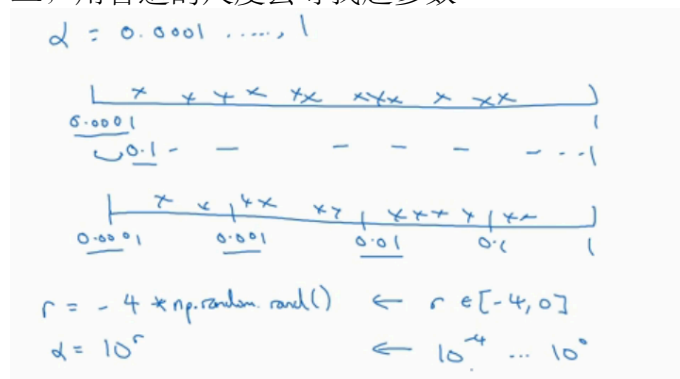 α = 0.0001 ....., 1
0.0001 1
0.1 - - - - - - - - 1
0.0001 0.001 0.01 0.1 1
r = - 4 * np.random.rand() ← r ∈ [-4, 0]
α = 10^r ← 10^-4 ... 10^0